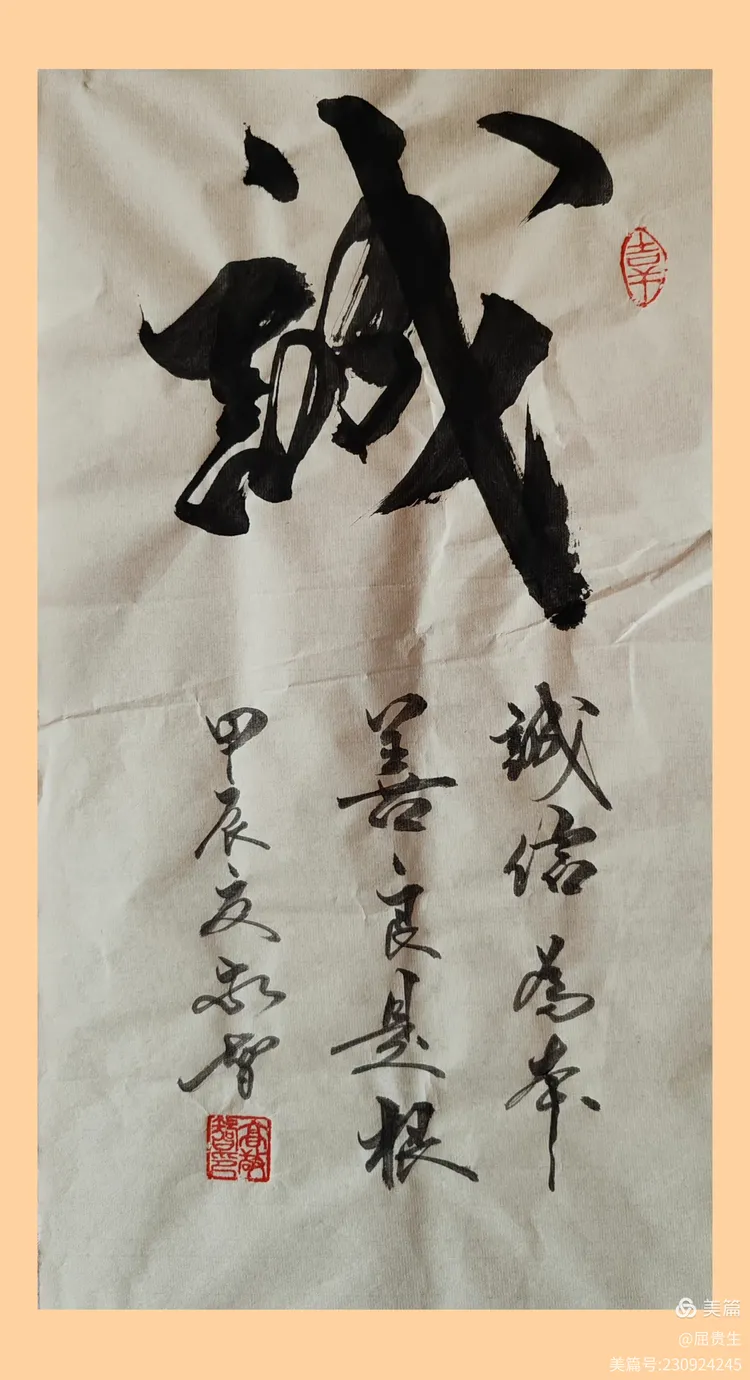 誠
誠信為本
善良是根
甲辰夏敬智
美篇
@屈贵生
美篇号:230924245